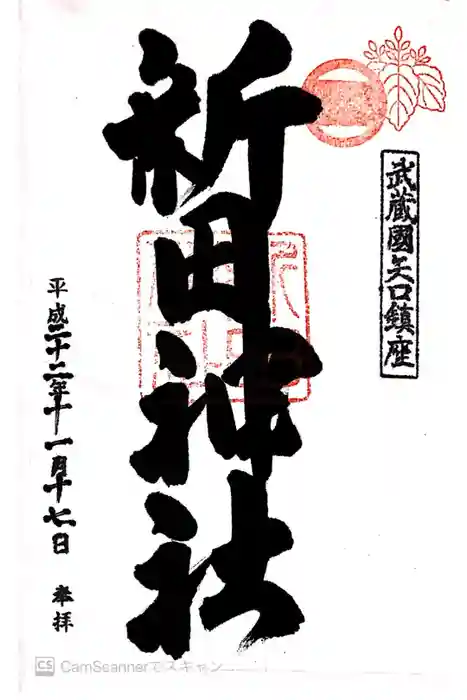 武蔵國矢口鎮座
新田神社
平成二十二年十一月十七日 奉拝
CS CamScannerでスキャン